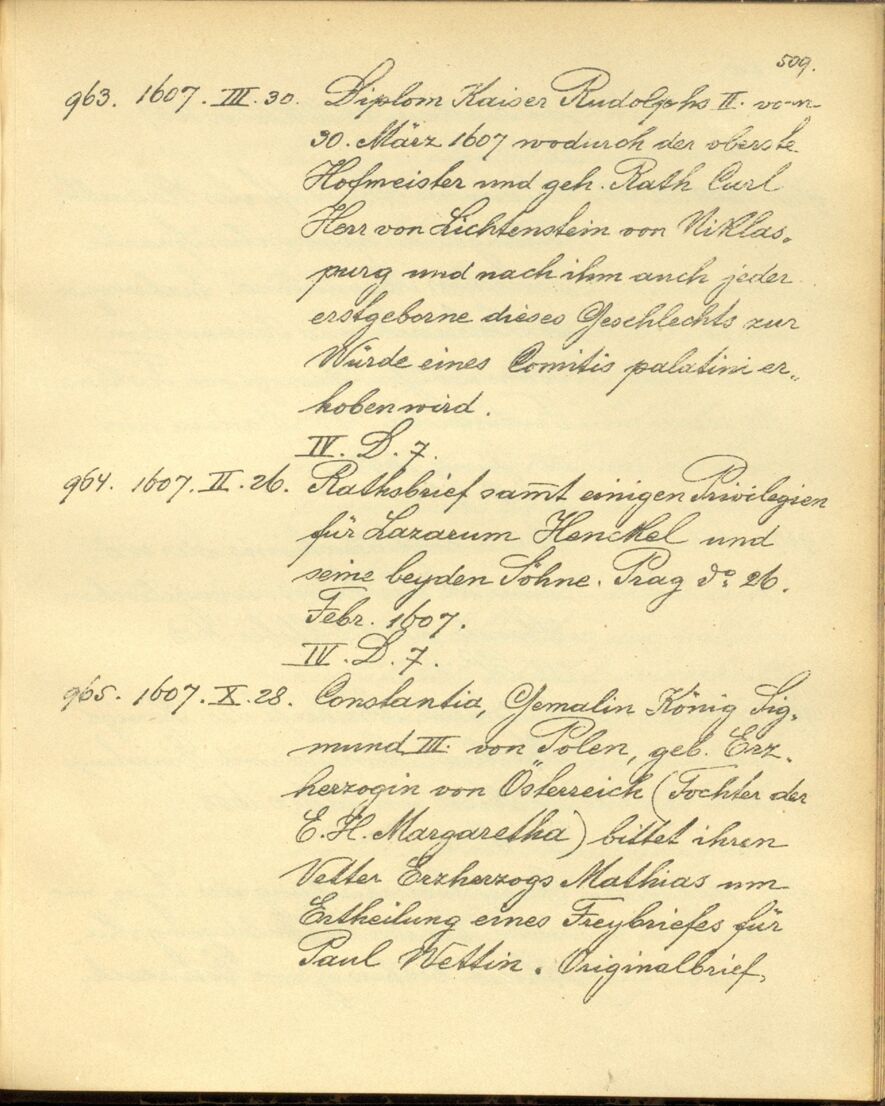 509.
963. 1607. III. 30. Diplom Kaiser Rudolphs II. vom
30. März 1607 wodurch der oberste
Hofmeister und geh. Rath Carl
Herr von Lichtenstein von Niklas„
purg und nach ihm auch jeder
erstgeborne dieses Geschlechts zur
Würde eines Comitis palatini er„
hoben wird.
IV. D. 7.
964. 1607. II. 26. Rathsbrief sam̅t einigen Privilegien
für Lazarum Henckel und
seine beyden Söhne. Prag do: 26.
Febr. 1607.
IV. D. 7.
965. 1607. X. 28. Constantia, Gemalin König Sig„
mund III. von Polen, geb. Erz„
herzogin von Österreich (Tochter der
E. H. Margaretha) bittet ihren
Vetter Erzherzogs Mathias um
Ertheilung eines Freybriefes für
Paul Wettin. Originalbrief,